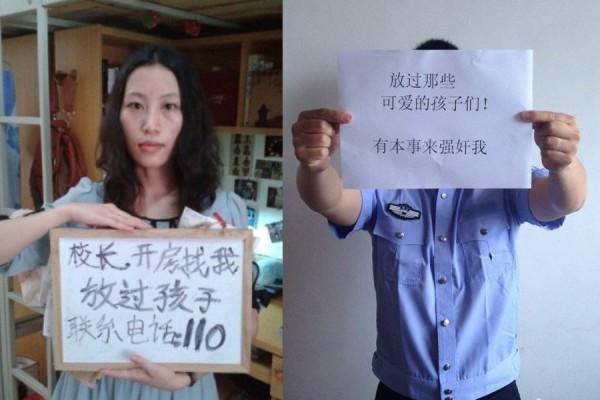 校长,开房找我
放过孩子
联系电话:110
放过那些
可爱的孩子们!
有本事来强奸我